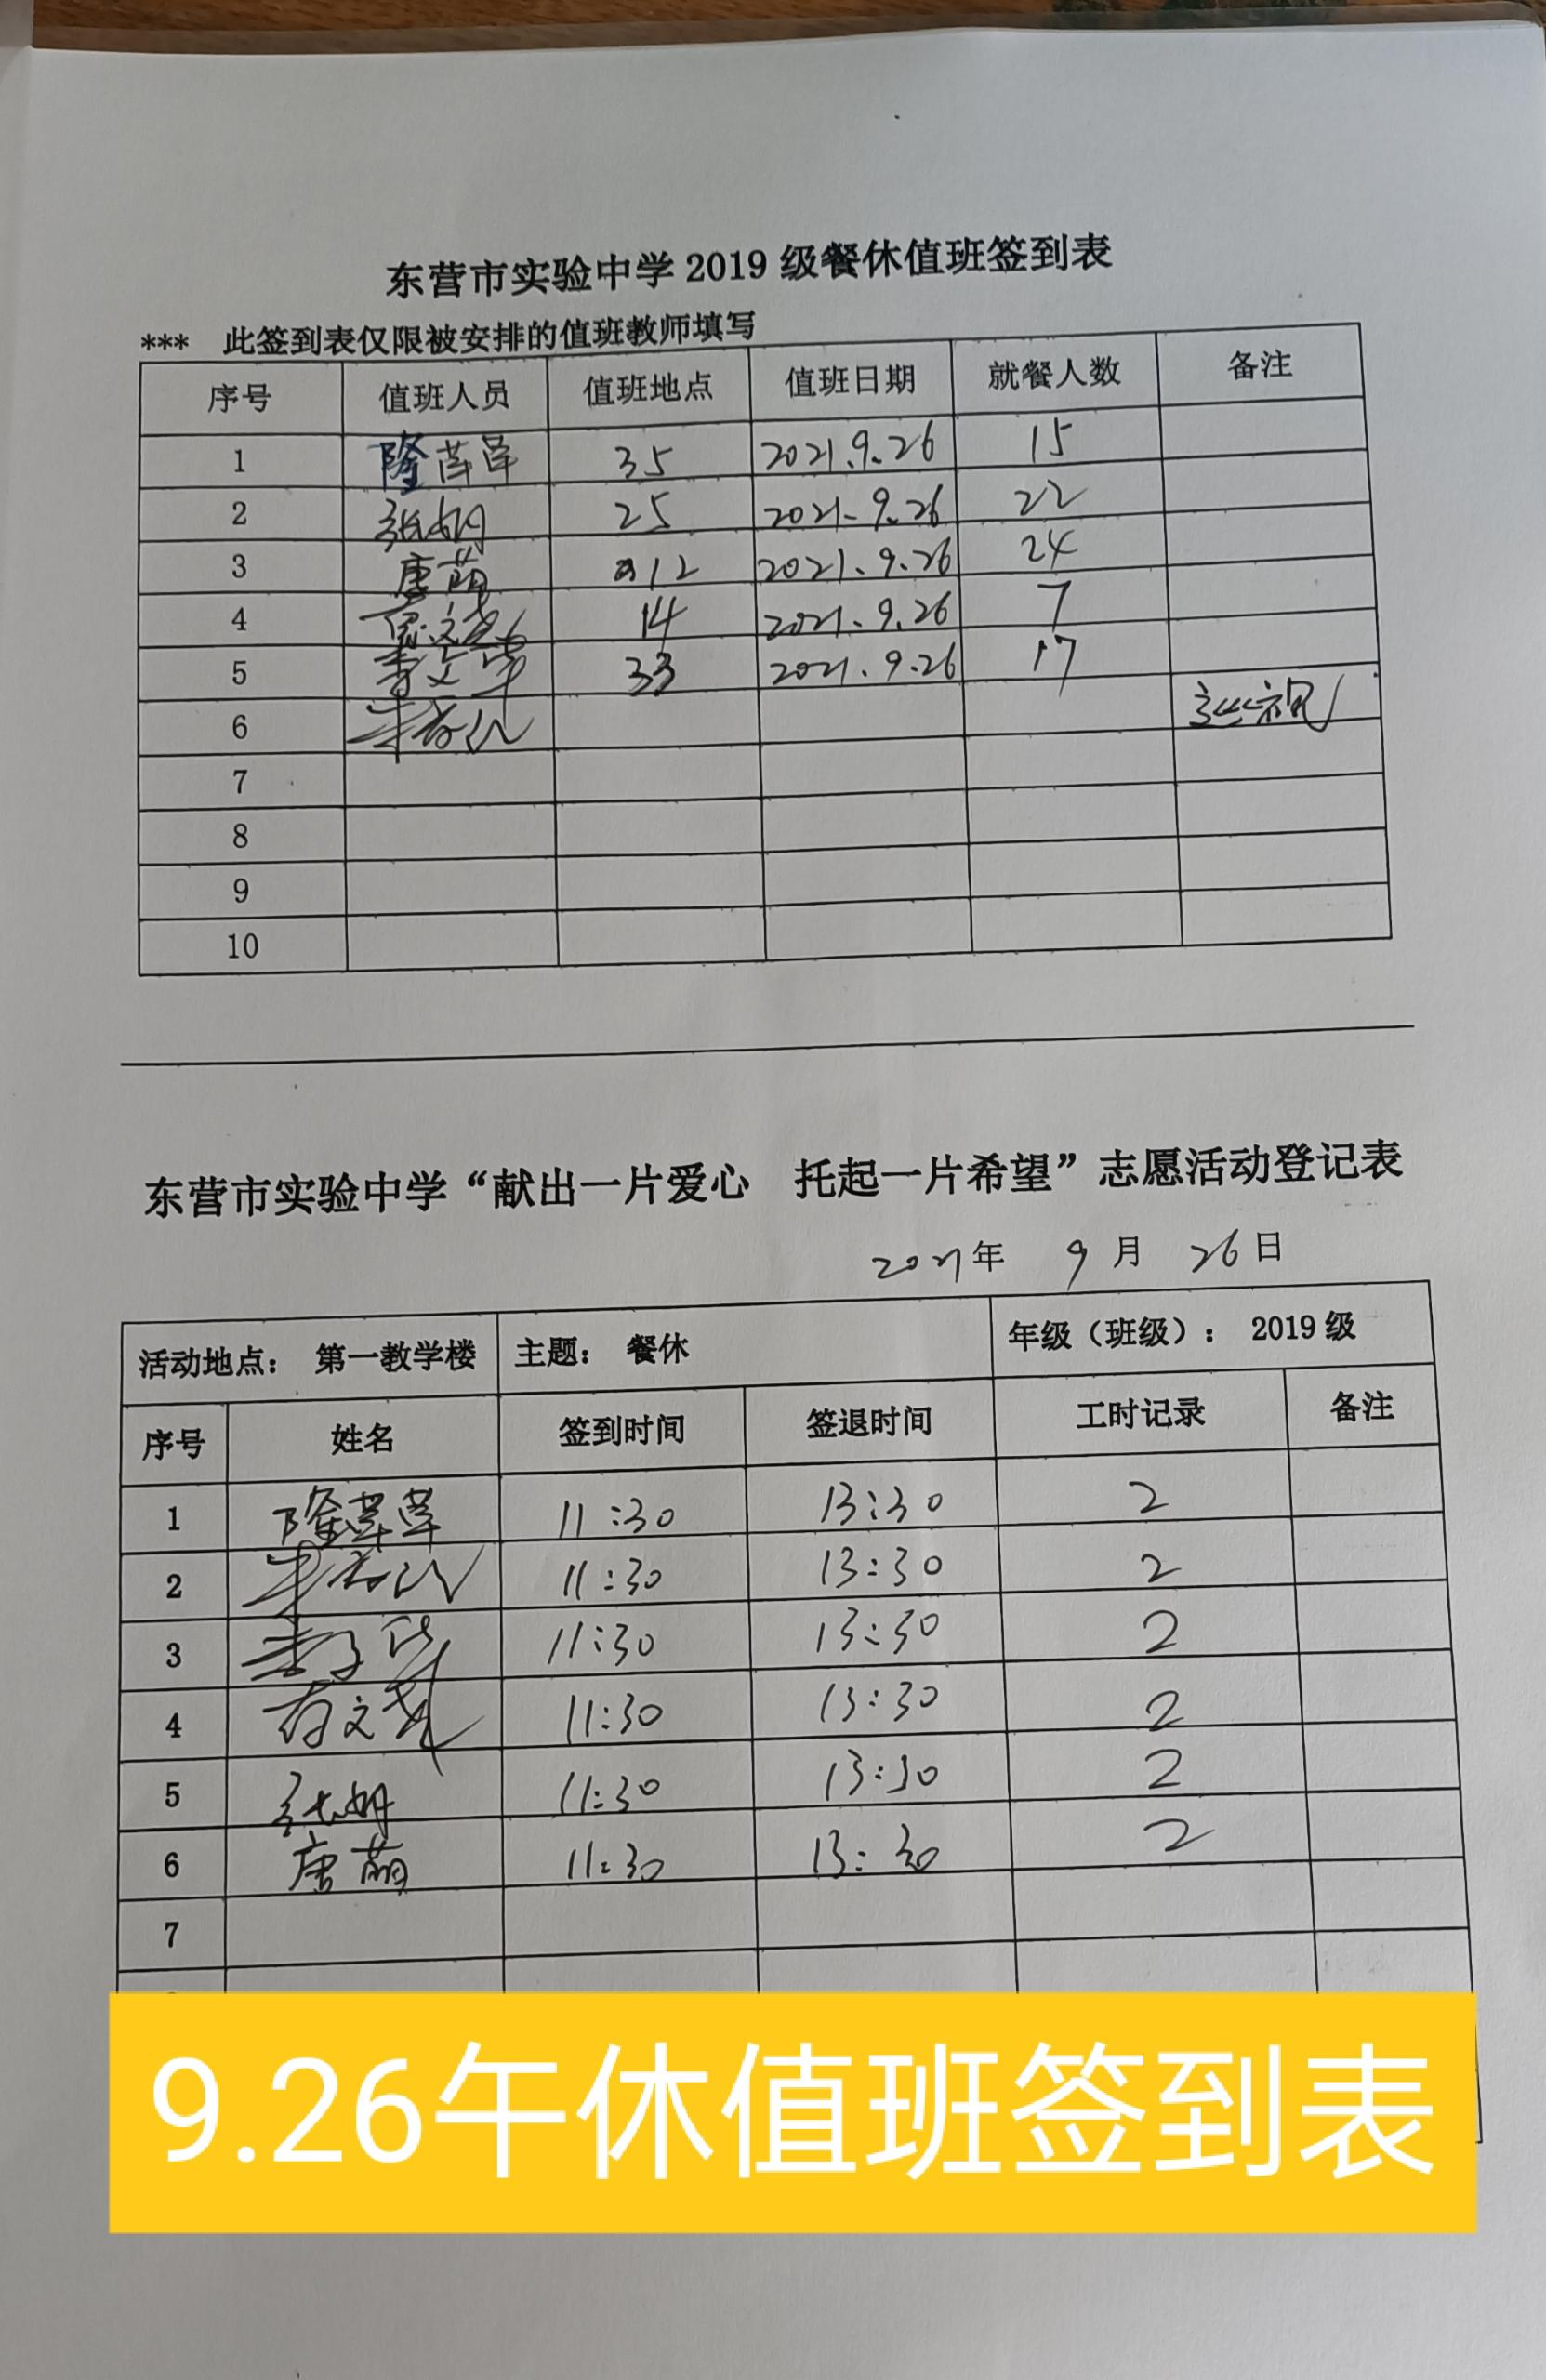 东营市实验中学 2019 级餐休值班签到表
*** 此签到表仅限被安排的值班教师填写
序号 值班人员 值班地点 值班日期 就餐人数 备注
1 隆 35 2021.9.26 15
2 张娟 25 2021.9.26 22
3 唐萌 12 2021.9.26 24
4 14 2021.9.26 7
5 33 2021.9.26 17
6 巡视
7
8
9
10
东营市实验中学“献出一片爱心 托起一片希望”志愿活动登记表
2021年 9月 26日
活动地点: 第一教学楼 主题: 餐休 年级(班级): 2019 级
序号 姓名 签到时间 签退时间 工时记录 备注
1 隆 11:30 13:30 2
2 11:30 13:30 2
3 11:30 13:30 2
4 11:30 13:30 2
5 11:30 13:30 2
6 唐萌 11:30 13:30 2
7
9.26午休值班签到表